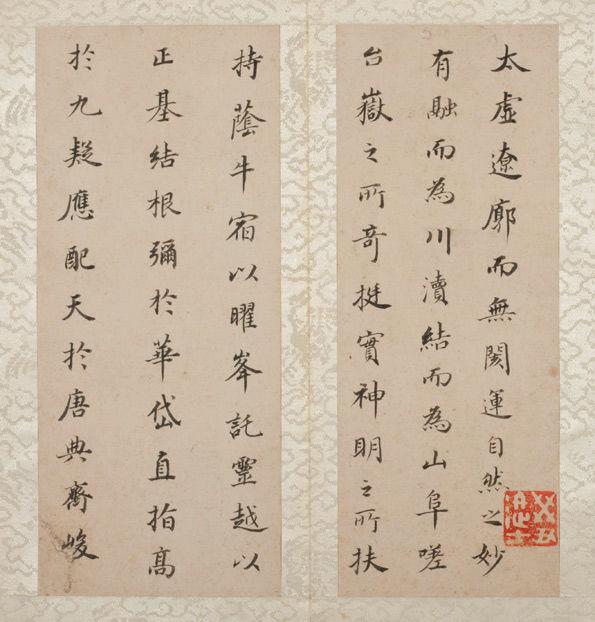 太虛遼廓而無閡運自然之妙
有融而為川瀆結而為山阜嗟
台嶽之所奇挺實神明之所扶
持蔭牛宿以曜峯託靈越以
正基結根彌於華岱直指高
於九疑應配天於唐典齊峻